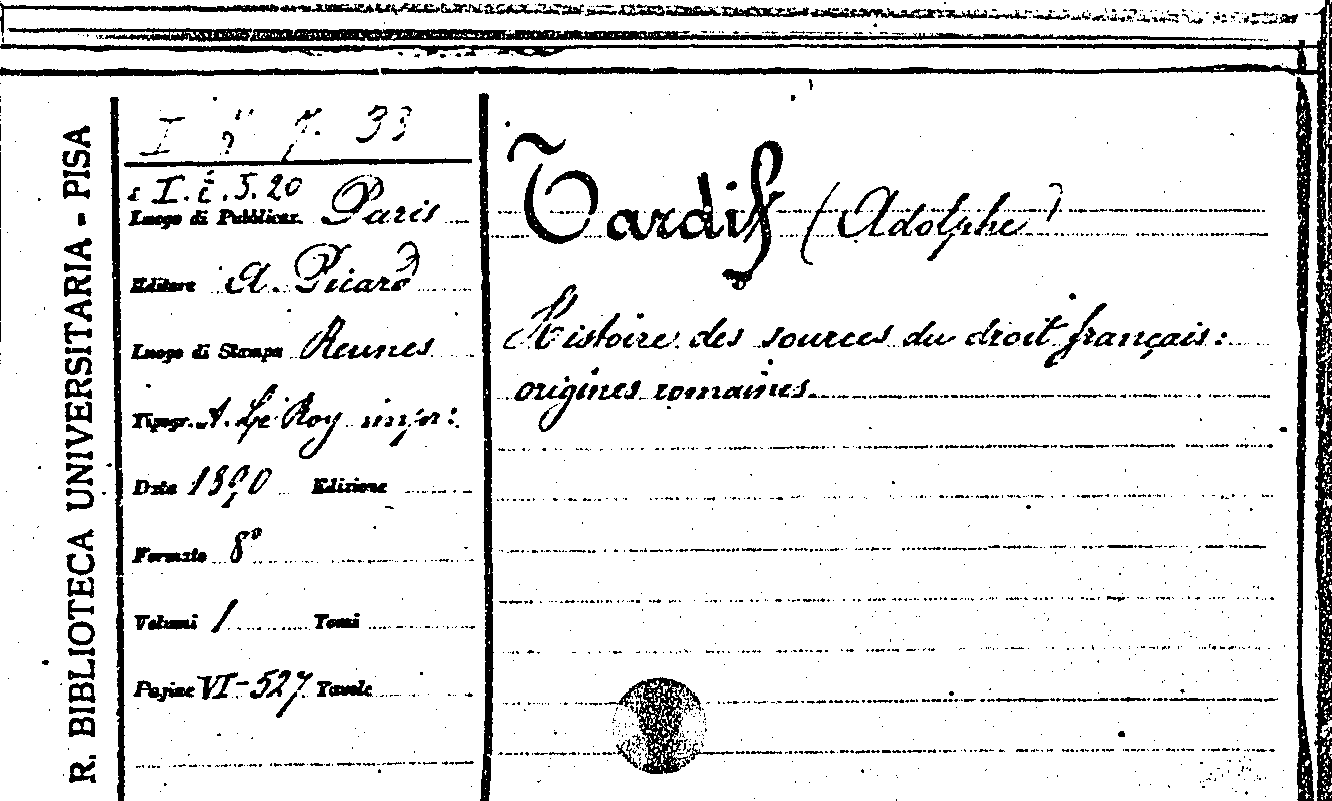 R. BIBLIOTECA UNIVERSITARIA - PISA
I 9 7. 33
e I. i. 5. 20
Luogo di Pubblicaz. Paris
Editore A. Picard
Luogo di Stampa Rennes
Tipogr. A. Le Roy impr:
Data 1890 Edizione
Formato 8°
Volumi 1 Tomi
Pagine VI-527 Tavole
Tardif (Adolphe)
Histoire des sources du droit français:
origines romaines.